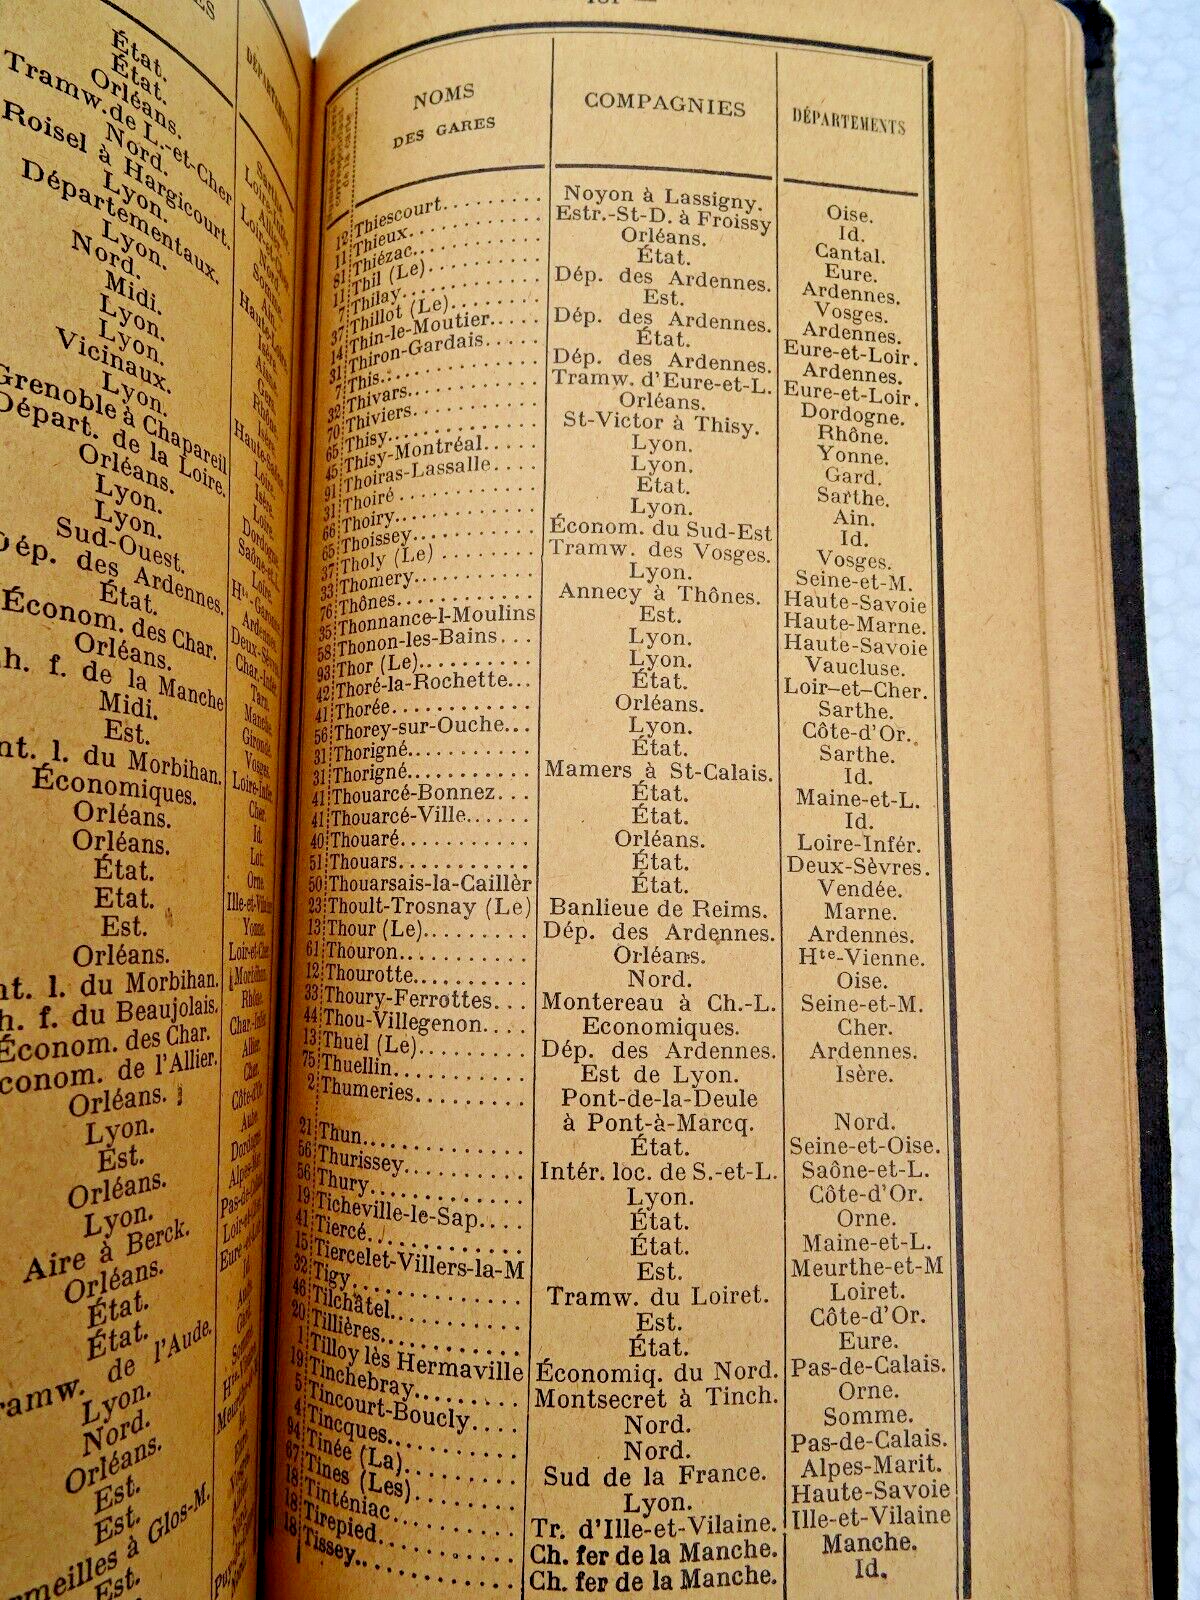 État.
État.
Orléans.
Tramw. de L.-et-Cher
Nord.
Roisel à Hargicourt.
Lyon.
Départementaux.
Lyon.
Nord.
Midi.
Lyon.
Lyon.
Vicinaux.
Lyon.
Grenoble à Chapareil
Départ. de la Loire.
Orléans.
Lyon.
Lyon.
Sud-Ouest.
Dép. des Ardennes.
État.
Économ. des Char.
Orléans.
Ch. f. de la Manche
Midi.
Est.
nt. l. du Morbihan.
Économiques.
Orléans.
Orléans.
État.
Etat.
Est.
Orléans.
nt. l. du Morbihan.
h. f. du Beaujolais.
Économ. des Char.
conom. de l'Allier.
Orléans.
Lyon.
Est.
Orléans.
Lyon.
Aire à Berck.
Orléans.
État.
État.
ramw. de l'Aude.
Lyon.
Nord.
Orléans.
Est.
Est.
rmeilles à Glos-M.
Est.
NOMS DES GARES COMPAGNIES DÉPARTEMENTS
12 Thiescourt......... Noyon à Lassigny. Oise.
11 Thieux............ Estr.-St-D. à Froissy Id.
81 Thiézac........... Orléans. Cantal.
11 Thil (Le).......... État. Eure.
7 Thilay............. Dép. des Ardennes. Ardennes.
37 Thillot (Le)........ Est. Vosges.
14 Thin-le-Moutier..... Dép. des Ardennes. Ardennes.
31 Thiron-Gardais..... État. Eure-et-Loir.
7 This............... Dép. des Ardennes. Ardennes.
32 Thivars........... Tramw. d'Eure-et-L. Eure-et-Loir.
70 Thiviers........... Orléans. Dordogne.
65 Thisy............. St-Victor à Thisy. Rhône.
45 Thisy-Montréal..... Lyon. Yonne.
91 Thoiras-Lassalle.... Lyon. Gard.
31 Thoiré............ Etat. Sarthe.
66 Thoiry............ Lyon. Ain.
65 Thoissey.......... Économ. du Sud-Est Id.
37 Tholy (Le)......... Tramw. des Vosges. Vosges.
33 Thomery.......... Lyon. Seine-et-M.
76 Thônes........... Annecy à Thônes. Haute-Savoie
35 Thonnance-l-Moulins Est. Haute-Marne.
58 Thonon-les-Bains... Lyon. Haute-Savoie
93 Thor (Le).......... Lyon. Vaucluse.
42 Thoré-la-Rochette... État. Loir-et-Cher.
41 Thorée............ Orléans. Sarthe.
56 Thorey-sur-Ouche... Lyon. Côte-d'Or.
31 Thorigné.......... État. Sarthe.
31 Thorigné.......... Mamers à St-Calais. Id.
41 Thouarcé-Bonnez... État. Maine-et-L.
41 Thouarcé-Ville...... État. Id.
40 Thouaré........... Orléans. Loire-Infér.
51 Thouars........... État. Deux-Sèvres.
50 Thouarsais-la-Caillèr État. Vendée.
23 Thoult-Trosnay (Le) Banlieue de Reims. Marne.
13 Thour (Le)......... Dép. des Ardennes. Ardennes.
61 Thouron........... Orléans. Hte-Vienne.
12 Thourotte.......... Nord. Oise.
33 Thoury-Ferrottes... Montereau à Ch.-L. Seine-et-M.
44 Thou-Villegenon.... Economiques. Cher.
13 Thuel (Le)......... Dép. des Ardennes. Ardennes.
75 Thuellin........... Est de Lyon. Isère.
2 Thumeries......... Pont-de-la-Deule
à Pont-à-Marcq. Nord.
21 Thun............. État. Seine-et-Oise.
56 Thurissey.......... Intér. loc. de S.-et-L. Saône-et-L.
56 Thury............ Lyon. Côte-d'Or.
19 Ticheville-le-Sap.... État. Orne.
41 Tiercé............ État. Maine-et-L.
15 Tiercelet-Villers-la-M Est. Meurthe-et-M
32 Tigy............. Tramw. du Loiret. Loiret.
46 Tilchâtel.......... Est. Côte-d'Or.
20 Tillières........... État. Eure.
1 Tilloy lès Hermaville Économiq. du Nord. Pas-de-Calais.
19 Tinchebray........ Montsecret à Tinch. Orne.
5 Tincourt-Boucly.... Nord. Somme.
4 Tincques.......... Nord. Pas-de-Calais.
94 Tinée (La)......... Sud de la France. Alpes-Marit.
67 Tines (Les)........ Lyon. Haute-Savoie
18 Tinténiac.......... Tr. d'Ille-et-Vilaine. Ille-et-Vilaine
18 Tirepied.......... Ch. fer de la Manche. Manche.
18 Tissey............ Ch. fer de la Manche. Id.